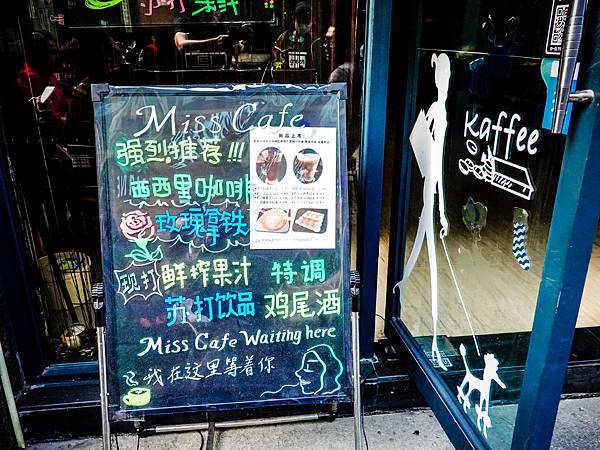 Miss Cafe
强烈推荐!!!
西西里咖啡
玫瑰拿铁
现打 鲜榨果汁 特调
苏打饮品 鸡尾酒
Miss Cafe Waiting here
我在这里等着你
新品上市
Kaffee